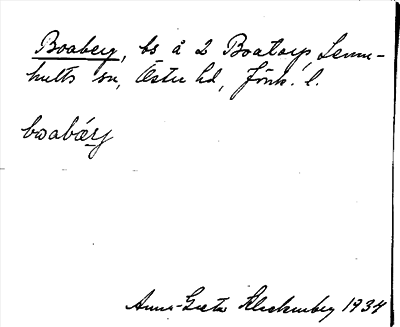 Boaberg, bs å 2 Boatorp, Lemn-
hults sn, Östra hd, Jönk. l.
boabærj
Anna-Greta Fleckenberg 1934